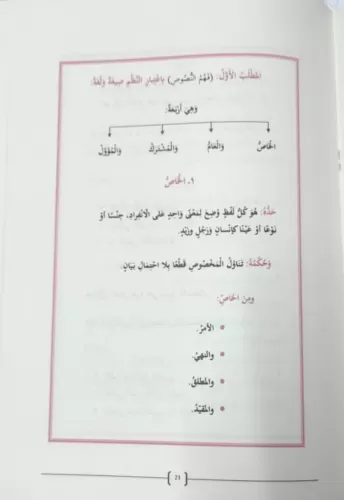 المَطْلَبُ الأَوَّلُ: (فَهْمُ النُّصُوصِ) بِاعْتِبَارِ النَّظْمِ صِيغَةً وَلُغَةً:
وَهِيَ أَرْبَعَةٌ:
الخَاصُّ وَالْعَامُّ وَالْمُشْتَرَكُ وَالْمُؤَوَّلُ
١. الخَاصُّ
حَدُّهُ: هُوَ كُلُّ لَفْظٍ وُضِعَ لِمَعْنًى وَاحِدٍ عَلَى الْانْفِرَادِ، جِنْسًا أَوْ
نَوْعًا أَوْ عَيْنًا كَإِنْسَانٍ وَرَجُلٍ وَزَيْدٍ.
وَحُكْمُهُ: تَنَاوُلُ الْمَخْصُوصِ قَطْعًا بِلَا احْتِمَالِ بَيَانٍ.
وَمِنَ الخَاصِّ:
• الأَمْرُ.
• وَالنَّهْيُ.
• وَالمُطْلَقُ.
• وَالمُقَيَّدُ.
21